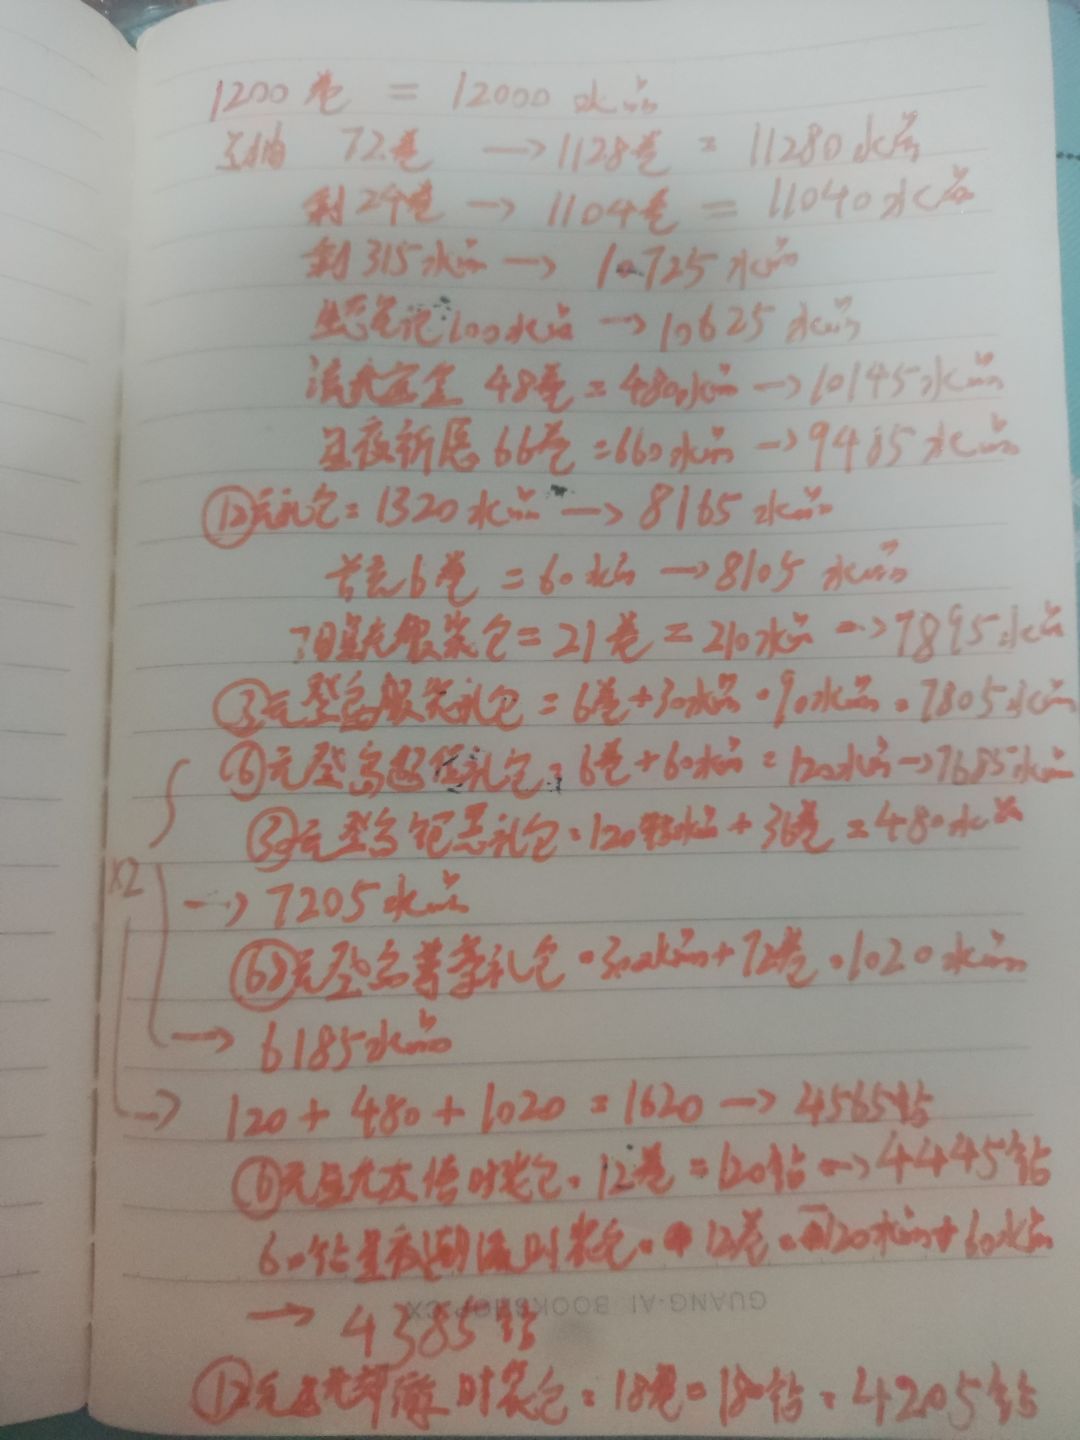 1200卷 = 12000水晶
72卷 → 1128卷 = 11280水晶
剩24卷 → 1104卷 = 11040水晶
剩315水晶 → 10725水晶
笔记100水晶 → 10625水晶
流光宝盒 48卷 = 480水晶 → 10145水晶
星夜祈愿 66卷 = 660水晶 → 9485水晶
⑫元礼包 = 1320水晶 → 8165水晶
首充6卷 = 60水晶 → 8105水晶
7日星光服装包 = 21卷 = 210水晶 → 7895水晶
③元登岛服装礼包 = 6卷+30水晶 = 90水晶 = 7805水晶
⑥元登岛超值礼包 = 6卷+60水晶 = 120水晶 → 7685水晶
㉚元登岛钜惠礼包 = 120水晶 + 36卷 = 480水晶
x2
→ 7205水晶
㊿元登岛尊享礼包 = 300水晶 + 72卷 = 1020水晶
→ 6185水晶
→ 120 + 480 + 1020 = 1620 → 4565钻
⑥元星光友情时装包 = 12卷 = 120钻 → 4445钻
60钻星夜潮流时装包 = 12卷 = 120水晶 + 60水晶
GUANG-AI BOOKSHOP.CX
→ 4385钻
⑫元星光时装包 = 18卷 = 180钻 = 4205钻